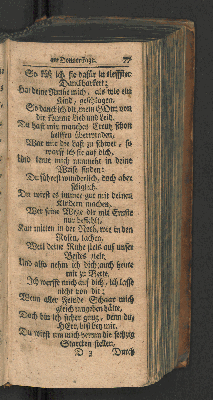 am Donnerstage. 77
So küß ich so dafür in
Danckbarkeit:
Hat deine Ruthe mich, als wie ein
Kind, geschlagen.
So danck ich dir, mein GOtt, von
Lieb und Leid.
Du hast mir manches Creutz schon
helffen überwinden,
War mir die Last zu schwer, so
warff ich sie auf dich.
Und lerne mich nunmehr in deine
Weise finden:
Du führest wunderlich, doch aber
seliglich.
Du wirst es immer gut mit deinen
Kindern machen,
Wer seine Wege dir mit Ernste
nur befiehlt,
Kan mitten in der Noth, wie in den
Rosen, lachen,
Weil deine Ruhe stets auf unser
Bestes zielt.
Und also nehm ich dich auch heute
mit zu Bette.
Ich werffe mich auf dich, ich lasse
nicht von dir:
Wenn aller Feinde Schaar mich
gleich umgeben hätte,
Doch bin ich sicher gnug, denn du,
HErr, bist bey mir.
Du wirst um mich herum die
Starcken stellen,
D 3 Durch